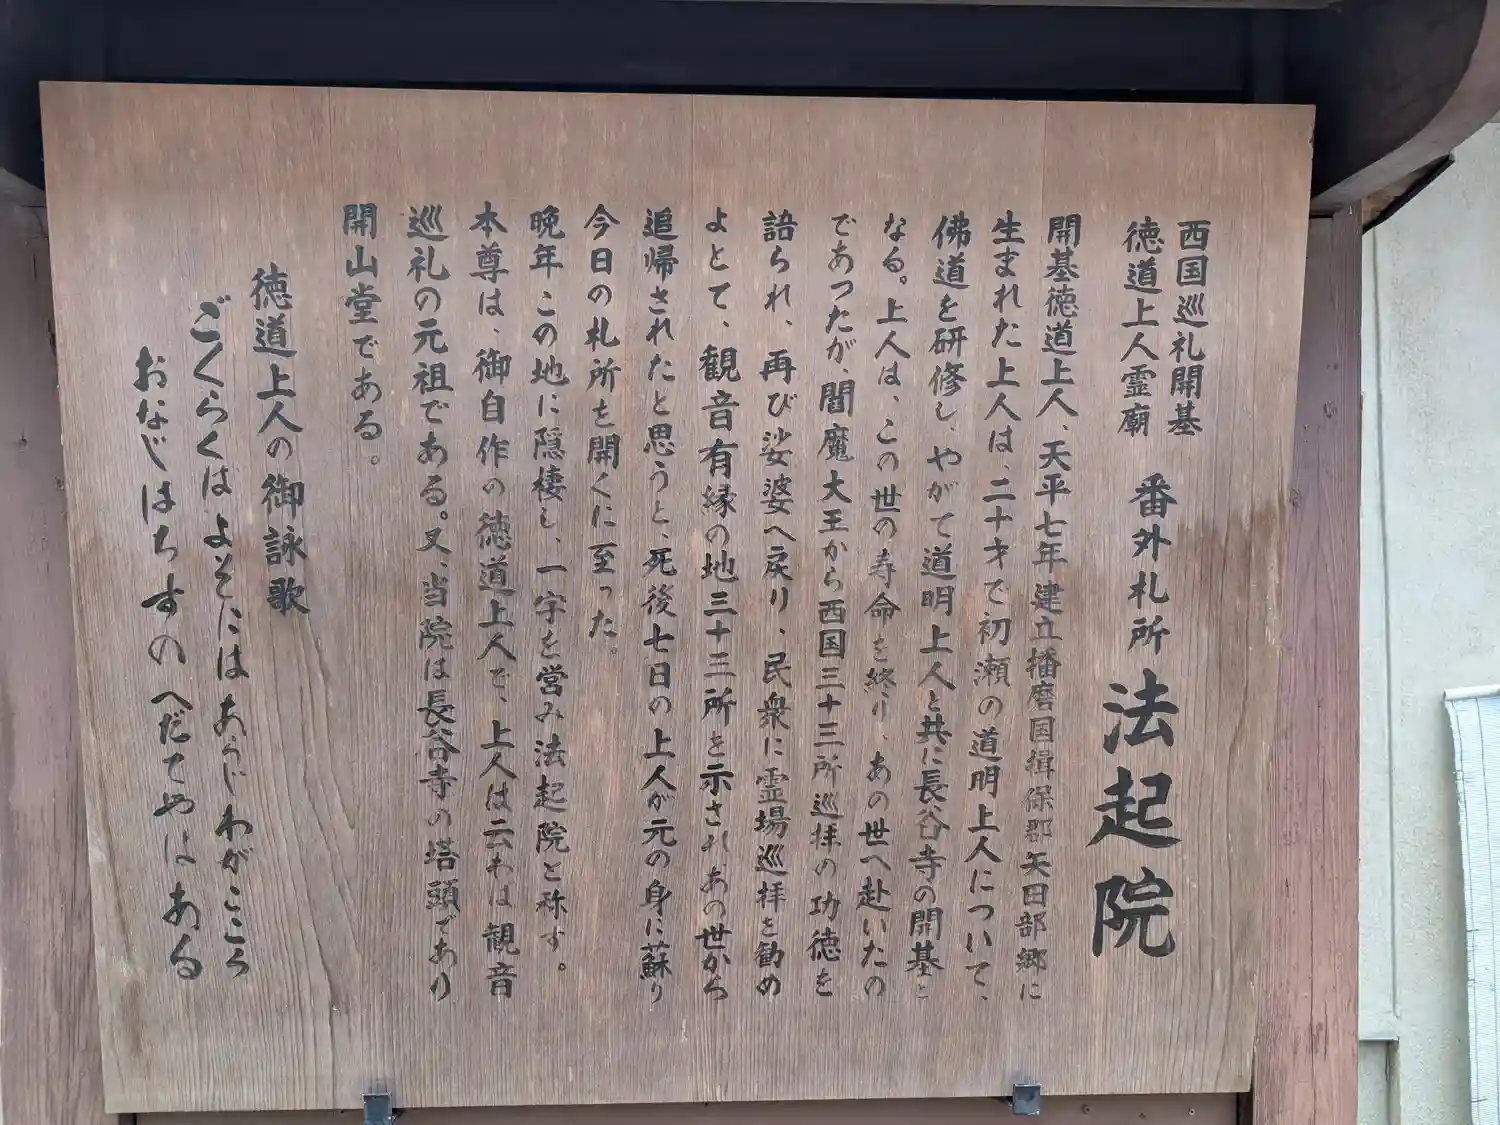 西国巡礼開基
徳道上人霊廟
番外札所 法起院
開基徳道上人、天平七年建立播磨国揖保郡矢田部郷に
生まれた上人は、二十才で初瀬の道明上人について、
佛道を研修し、やがて道明上人と共に長谷寺の開基と
なる。上人は、この世の寿命を終り、あの世へ赴いたの
であったが、閻魔大王から西国三十三所巡拝の功徳を
語られ、再び娑婆へ戻り、民衆に霊場巡拝を勧め
よとて、観音有縁の地三十三所を示されあの世から
追帰されたと思うと、死後七日の上人が元の身に蘇り
今日の札所を開くに至った。
晩年この地に隠棲し、一宇を営み法起院と称す。
本尊は、御自作の徳道上人で、上人は云わば観音
巡礼の元祖である。又、当院は長谷寺の塔頭であり
開山堂である。
徳道上人の御詠歌
ごくらくはよそにはあらじわがこころ
おなじはちすのへだてやはある